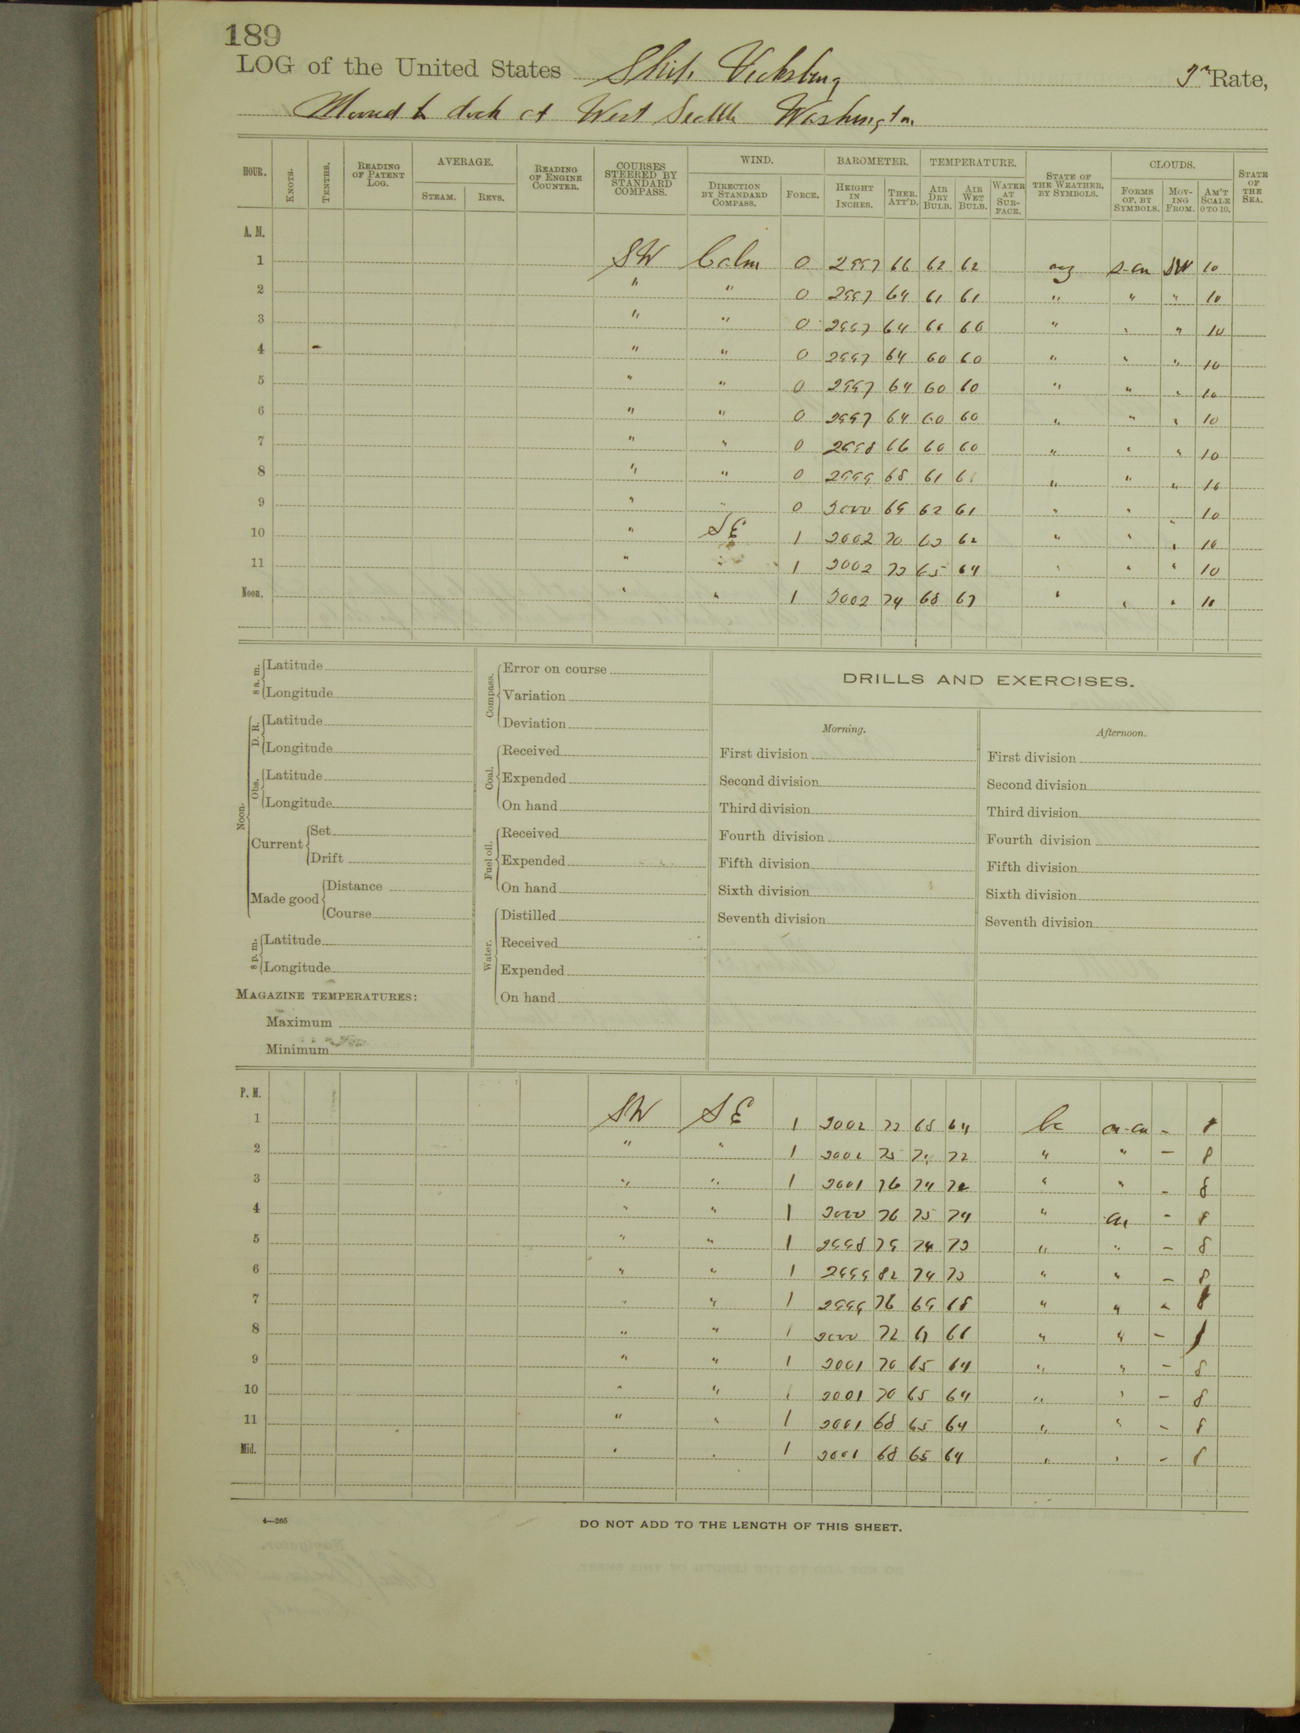 189
LOG of the United States Ship Vicksburg 3rd Rate,
Moored to dock at West Seattle Washington
HOUR. KNOTS. TENTHS. READING OF PATENT LOG. AVERAGE. STEAM. REVS. READING OF ENGINE COUNTER. COURSES STEERED BY STANDARD COMPASS. WIND. DIRECTION BY STANDARD COMPASS. FORCE. BAROMETER. HEIGHT IN INCHES. THER. ATT'D. TEMPERATURE. AIR DRY BULB. AIR WET BULB. WATER AT SURFACE. STATE OF THE WEATHER, BY SYMBOLS. CLOUDS. FORMS OF, BY SYMBOLS. MOVING FROM. AM'T SCALE 0 TO 10. STATE OF THE SEA.
A. M.
1 SW Calm 0 2997 66 62 62 S-cu SW 10
2 " " 0 2997 64 61 61 " " " 10
3 " " 0 2997 64 60 " " 10
4 " " 0 2997 64 60 60 " " " 10
5 " " 0 2997 64 60 60 " " " 10
6 " " 0 2997 64 60 60 " " " 10
7 " " 0 2998 66 60 60 " " " 10
8 " " 0 2999 68 61 " " " 10
9 " " 0 3000 69 62 61 " " " 10
10 " SE 1 3002 70 63 62 " " " 10
11 " " 1 3002 73 65 64 " " " 10
Noon. " " 1 3002 74 68 67 " " " 10
8 a. m. Latitude
Longitude
Noon. D. R. Latitude
Longitude
Obs. Latitude
Longitude
Current Set
Drift
Made good Distance
Course
8 p. m. Latitude
Longitude
MAGAZINE TEMPERATURES:
Maximum
Minimum
Compass. Error on course
Variation
Deviation
Coal. Received
Expended
On hand
Fuel oil. Received
Expended
On hand
Water. Distilled
Received
Expended
On hand
DRILLS AND EXERCISES.
Morning.
First division
Second division
Third division
Fourth division
Fifth division
Sixth division
Seventh division
Afternoon.
First division
Second division
Third division
Fourth division
Fifth division
Sixth division
Seventh division
P. M.
1 SW SE 1 3002 73 68 64 bc cu - 8
2 " " 1 3002 75 72 " " - 8
3 " " 1 3001 76 74 72 " " - 8
4 " " 1 3000 76 75 74 " cu - 8
5 " " 1 2998 79 74 73 " " - 8
6 " " 1 2999 82 74 73 " " - 8
7 " " 1 2999 76 69 68 " " " 8
8 " " 1 3000 72 67 66 " " - 8
9 " " 1 3001 70 65 64 " " - 8
10 " " 1 3001 70 65 64 " " - 8
11 " " 1 3001 68 65 64 " " - 8
Mid. " " 1 3001 68 65 64 " " - 8
4—265
DO NOT ADD TO THE LENGTH OF THIS SHEET.